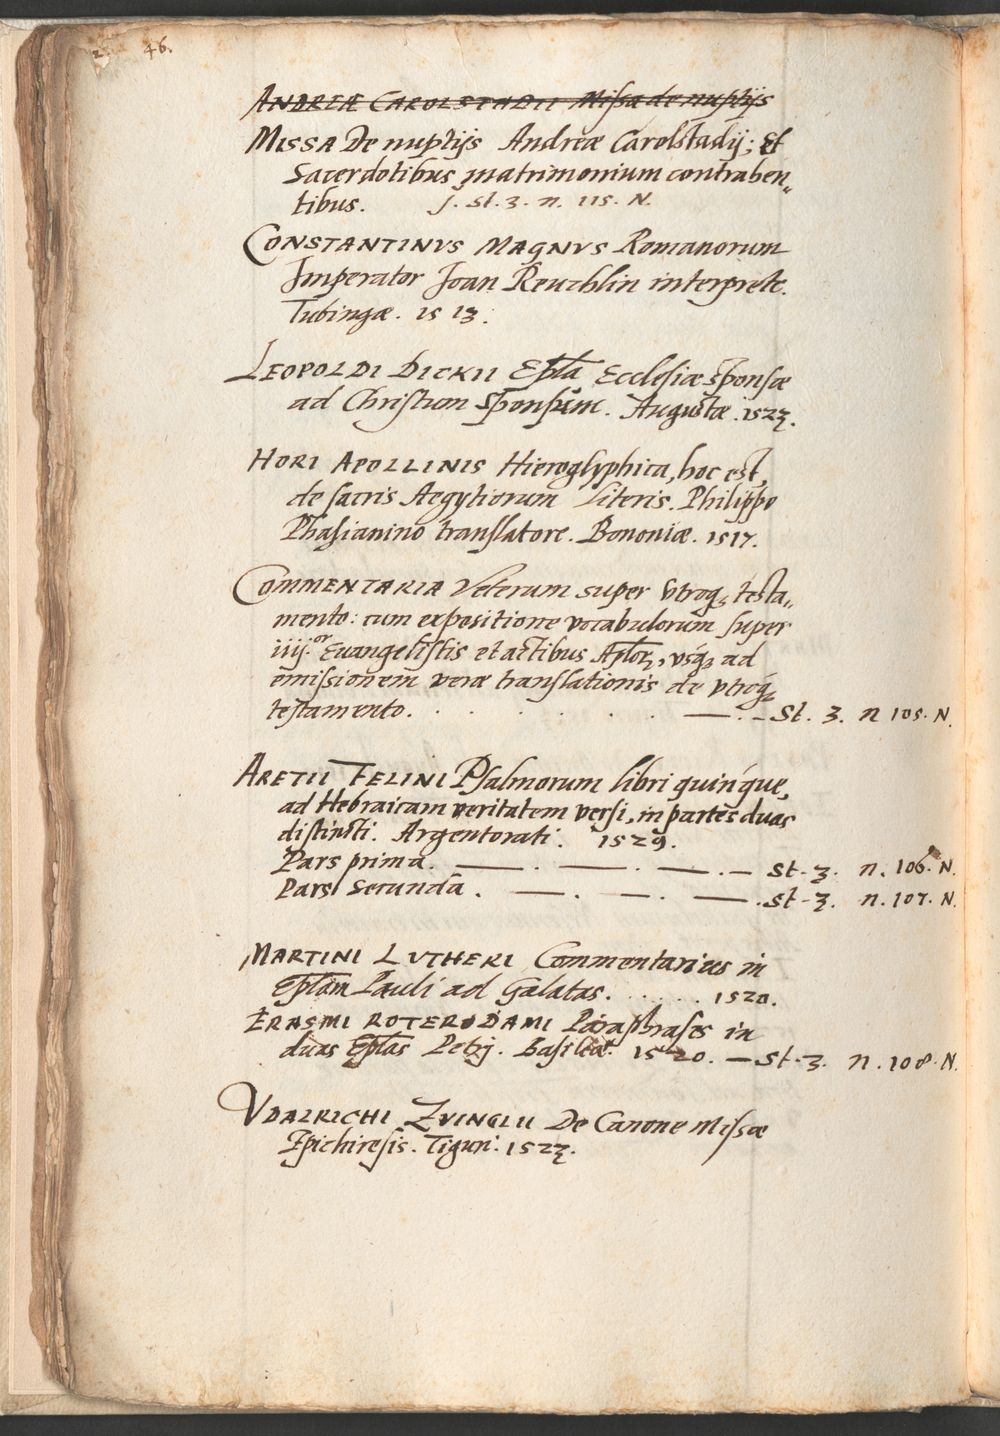 46.
ANDREÆ CAROLSTADII Missa de nuptijs
MISSA De nuptijs Andreæ Carolstadij; Et
Sacerdotibus matrimonium contrahen„
tibus. s. St. 3. n. 115. N.
CONSTANTINVS MAGNVS Romanorum
Imperator Joan Reuchlin interprete.
Tubingæ. 1513.
LEOPOLDI DICKII Epl̃a Ecclesiæ sponsæ
ad Christum Sponsum. Augustæ. 1523.
HORI APOLLINIS Hieroglyphica, hoc est,
de sacris Aegytiorum literis. Philippo
Phasianino translatore. Bononiæ. 1517.
COMMENTARIA Veterum super vtroqꝫ testa„
mento: cum expositione vocabulorum super
iiij.or Euangelistis et actibus Apl̃oꝝ, vsqꝫ ad
emissionem veræ translationis de vtroqꝫ
testamento. . . . . . — . – St. 3. n 105. N.
ARETII FELINI Psalmorum libri quinque,
ad Hebraicam veritatem versi, in partes duas
distincti. Argentorati. 1529.
Pars prima. — . — . — . – St. 3. n. 106. N.
Pars Secunda. — . — . — . St. 3. n. 107. N.
MARTINI LVTHERI Commentarius in
Epl̃am Pauli ad Galatas. . . . . . 1520.
ERASMI ROTERODAMI Paraphrases in
duas Epl̃as Petrj. Basileæ. 1520. — St. 3. n. 108. N.
VDALRICHI ZVINGLII De Canone Missæ
Epichiresis. Tiguri. 1523.